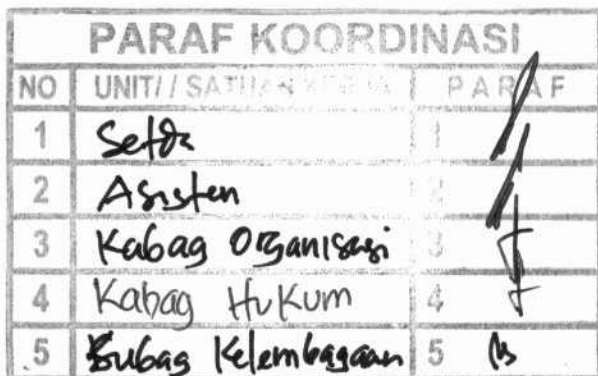 PARAF KOORDINASI
NO UNIT// SATUAN KERJA PARAF
1 Setda 1
2 Asisten 2
3 Kabag Organisasi 3
4 Kabag Hukum 4
5 Subag Kelembagaan 5